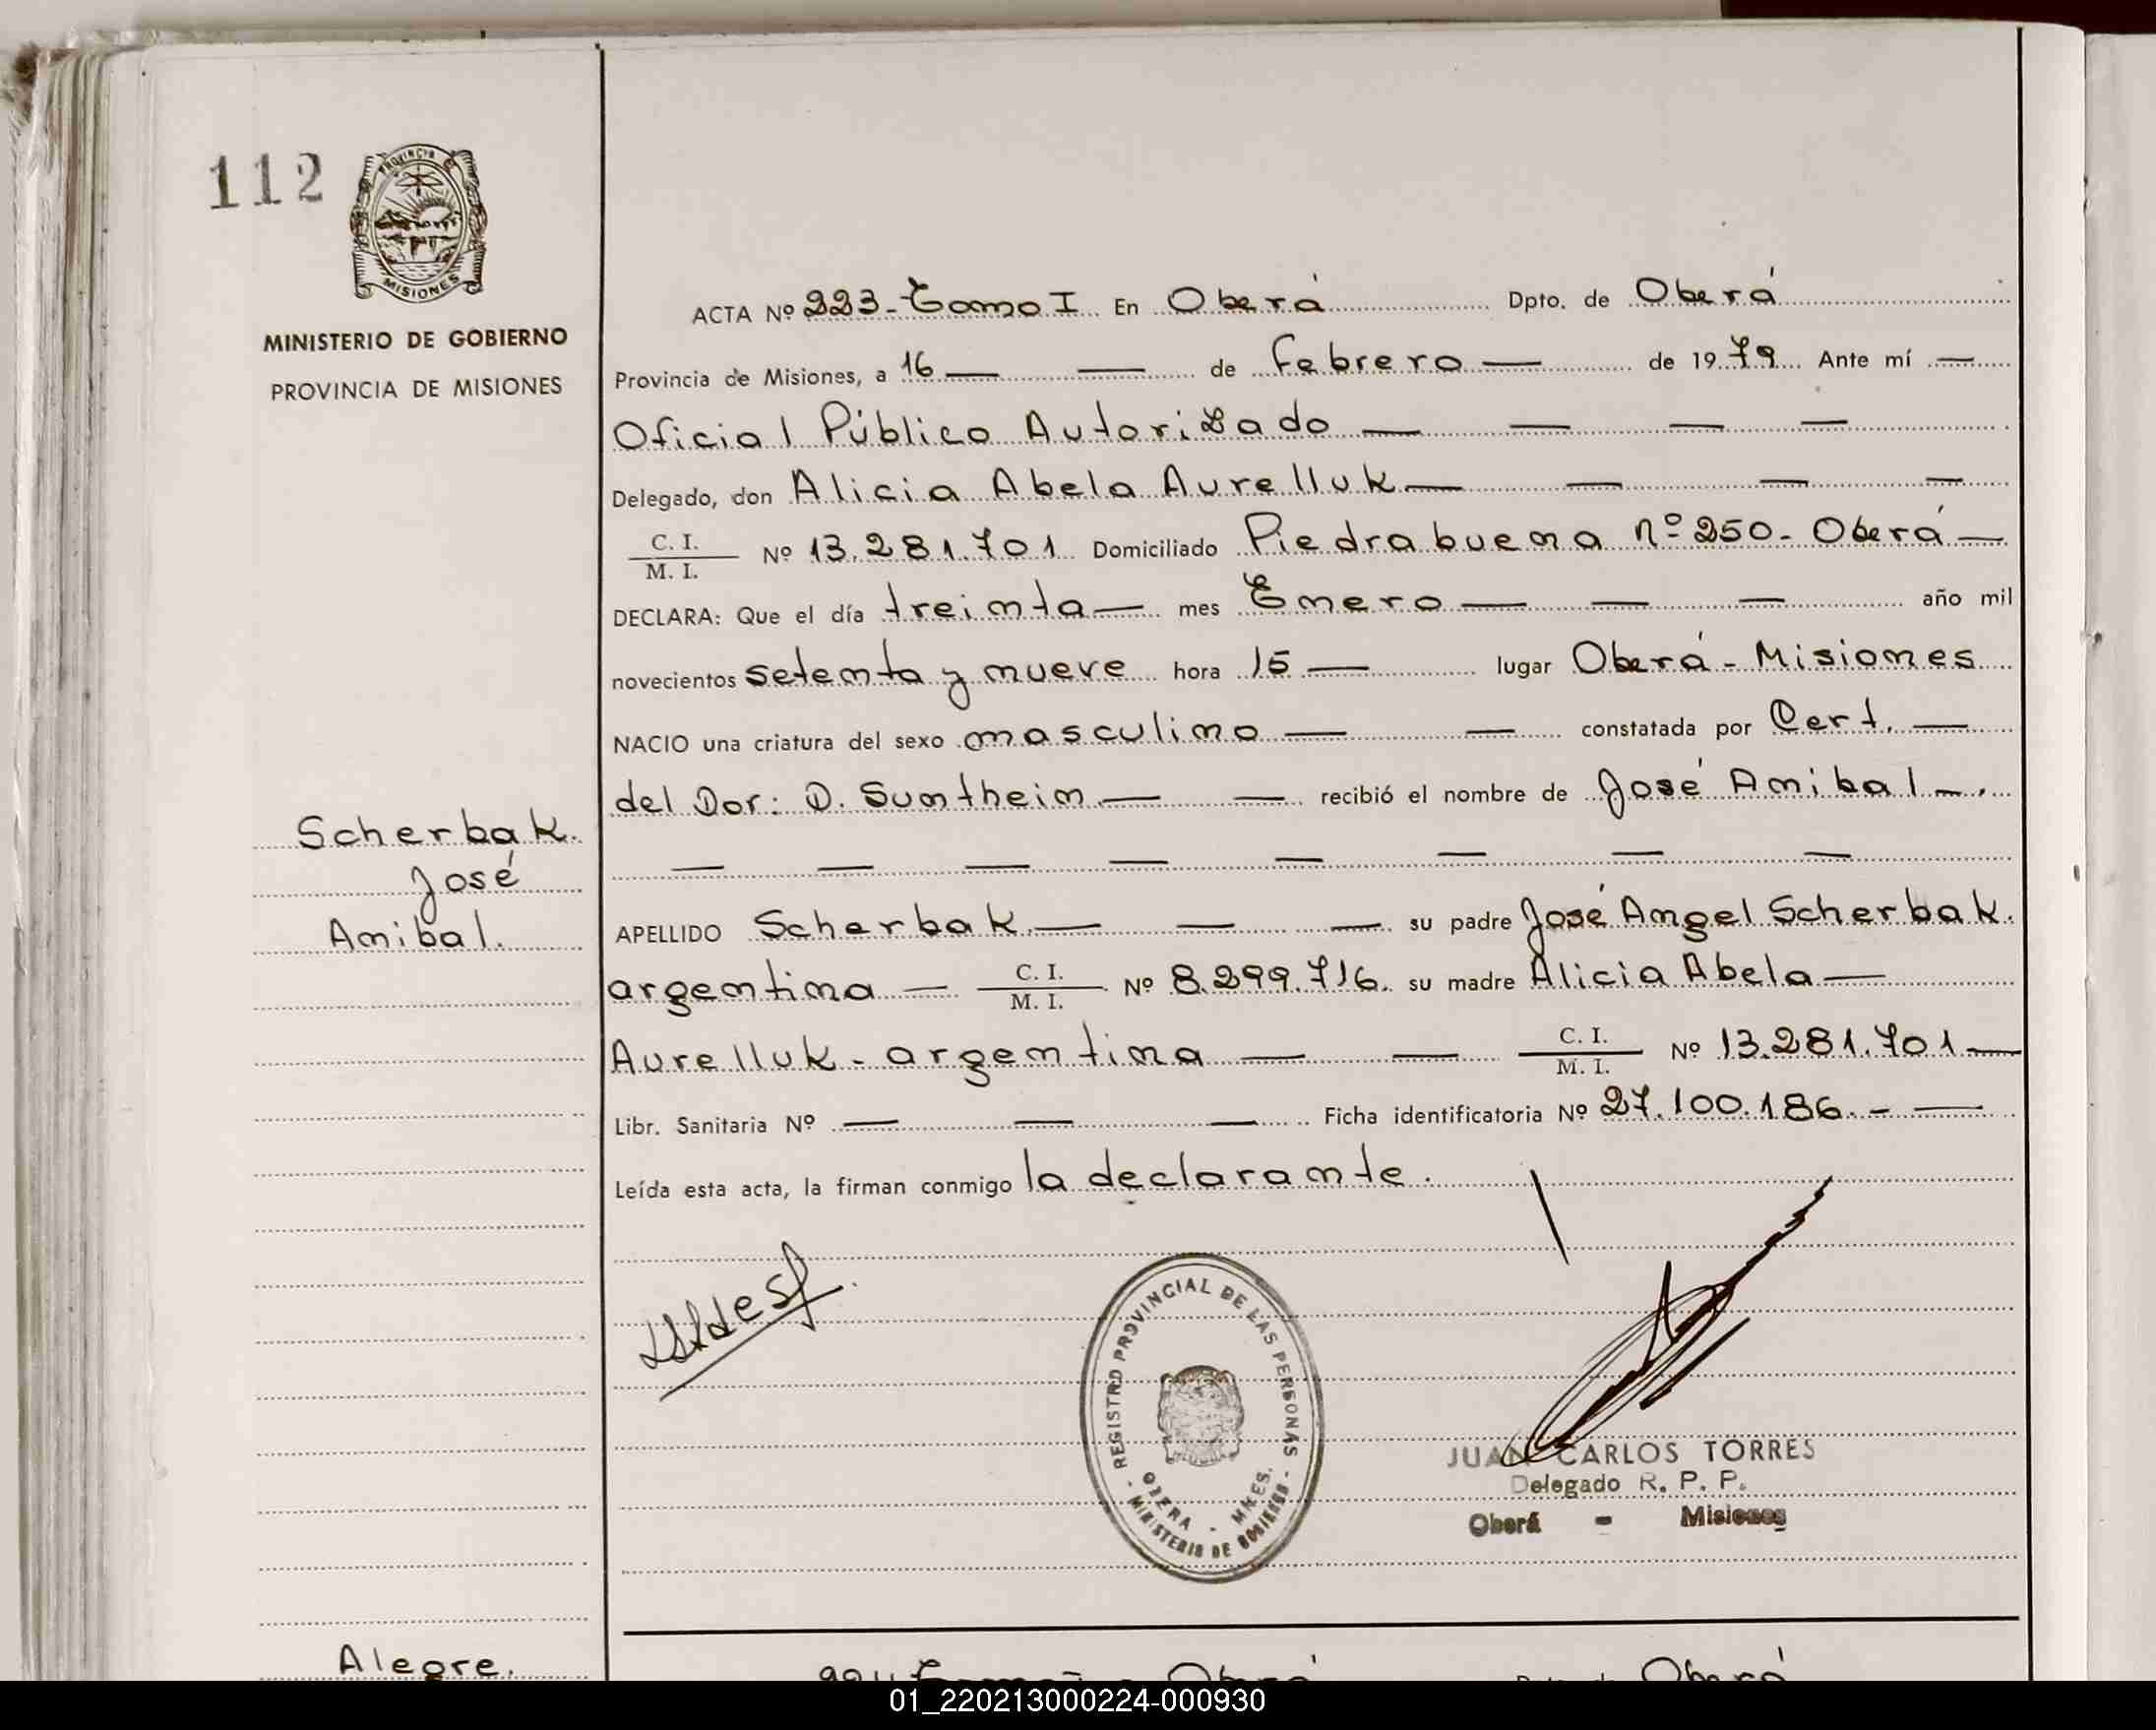 112
PROVINCIA
MISIONES
MINISTERIO DE GOBIERNO
PROVINCIA DE MISIONES
ACTA Nº 223-Tomo I En Oberá Dpto. de Oberá
Provincia de Misiones, a 16 — — de Febrero — de 1979 Ante mí —
Oficial Público Autorizado — — — —
Delegado, don Alicia Abela Aurelluk — — — —
C. I.
M. I. Nº 13.281.701 Domiciliado Piedrabuena nº 250- Oberá —
DECLARA: Que el día treinta — mes Enero — — — año mil
novecientos setenta y nueve hora 15 — lugar Oberá - Misiones
NACIO una criatura del sexo masculino — — constatada por Cert. —
del Dor: D. Suntheim — — recibió el nombre de José Anibal —.
— — — — — — — —
Scherbak.
José
Anibal.
APELLIDO Scherbak — — — su padre José Angel Scherbak.
argentina — C. I.
M. I. Nº 8.299.716. su madre Alicia Abela —
Aurelluk - argentina — — C. I.
M. I. Nº 13.281.701 —
Libr. Sanitaria Nº — — — Ficha identificatoria Nº 27.100.186. - —
Leída esta acta, la firman conmigo la declarante.
REGISTRO PROVINCIAL DE LAS PERSONAS
OBERA - MNES.
MINISTERIO DE GOBIERNO
JUAN CARLOS TORRES
Delegado R. P. P.
Oberá - Misiones
Alegre.
Oberá Oberá
01_220213000224-000930